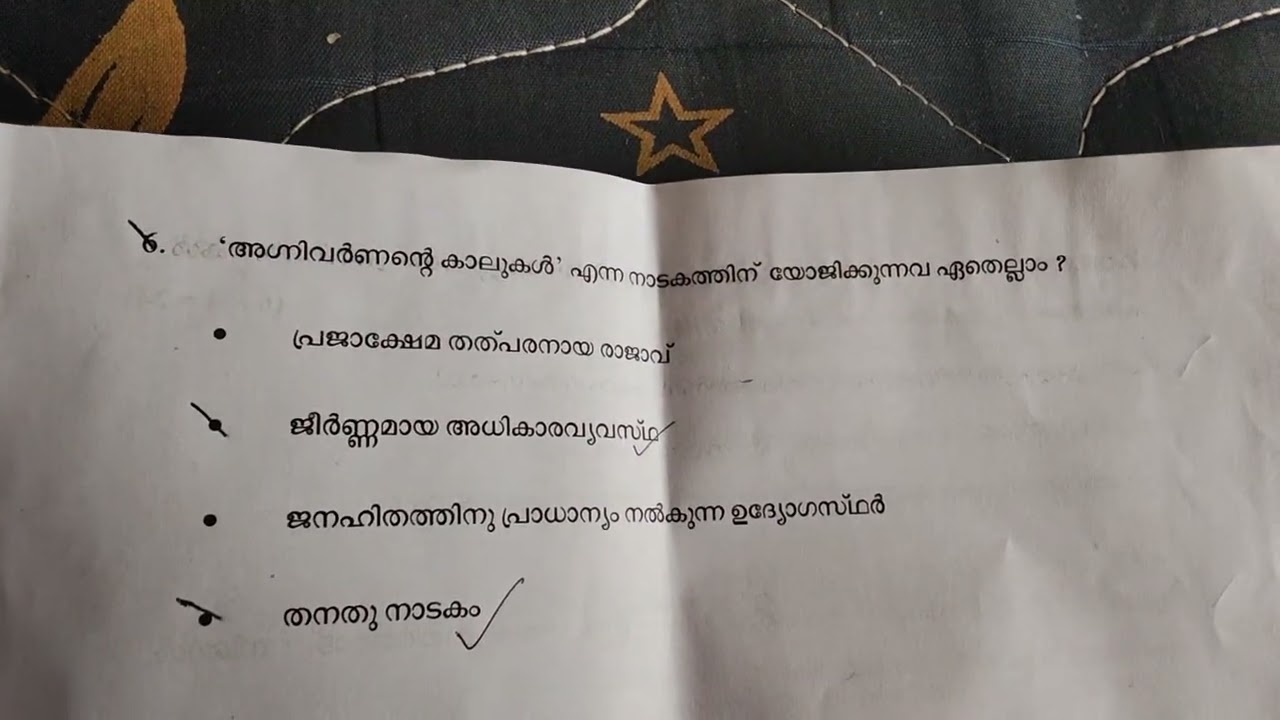 6. ‘അഗ്നിവർണന്റെ കാലുകൾ’ എന്ന നാടകത്തിന് യോജിക്കുന്നവ ഏതെല്ലാം ?
• പ്രജാക്ഷേമ തത്പരനായ രാജാവ്
• ജീർണ്ണമായ അധികാരവ്യവസ്ഥ
• ജനഹിതത്തിനു പ്രാധാന്യം നൽകുന്ന ഉദ്യോഗസ്ഥർ
• തനതു നാടകം